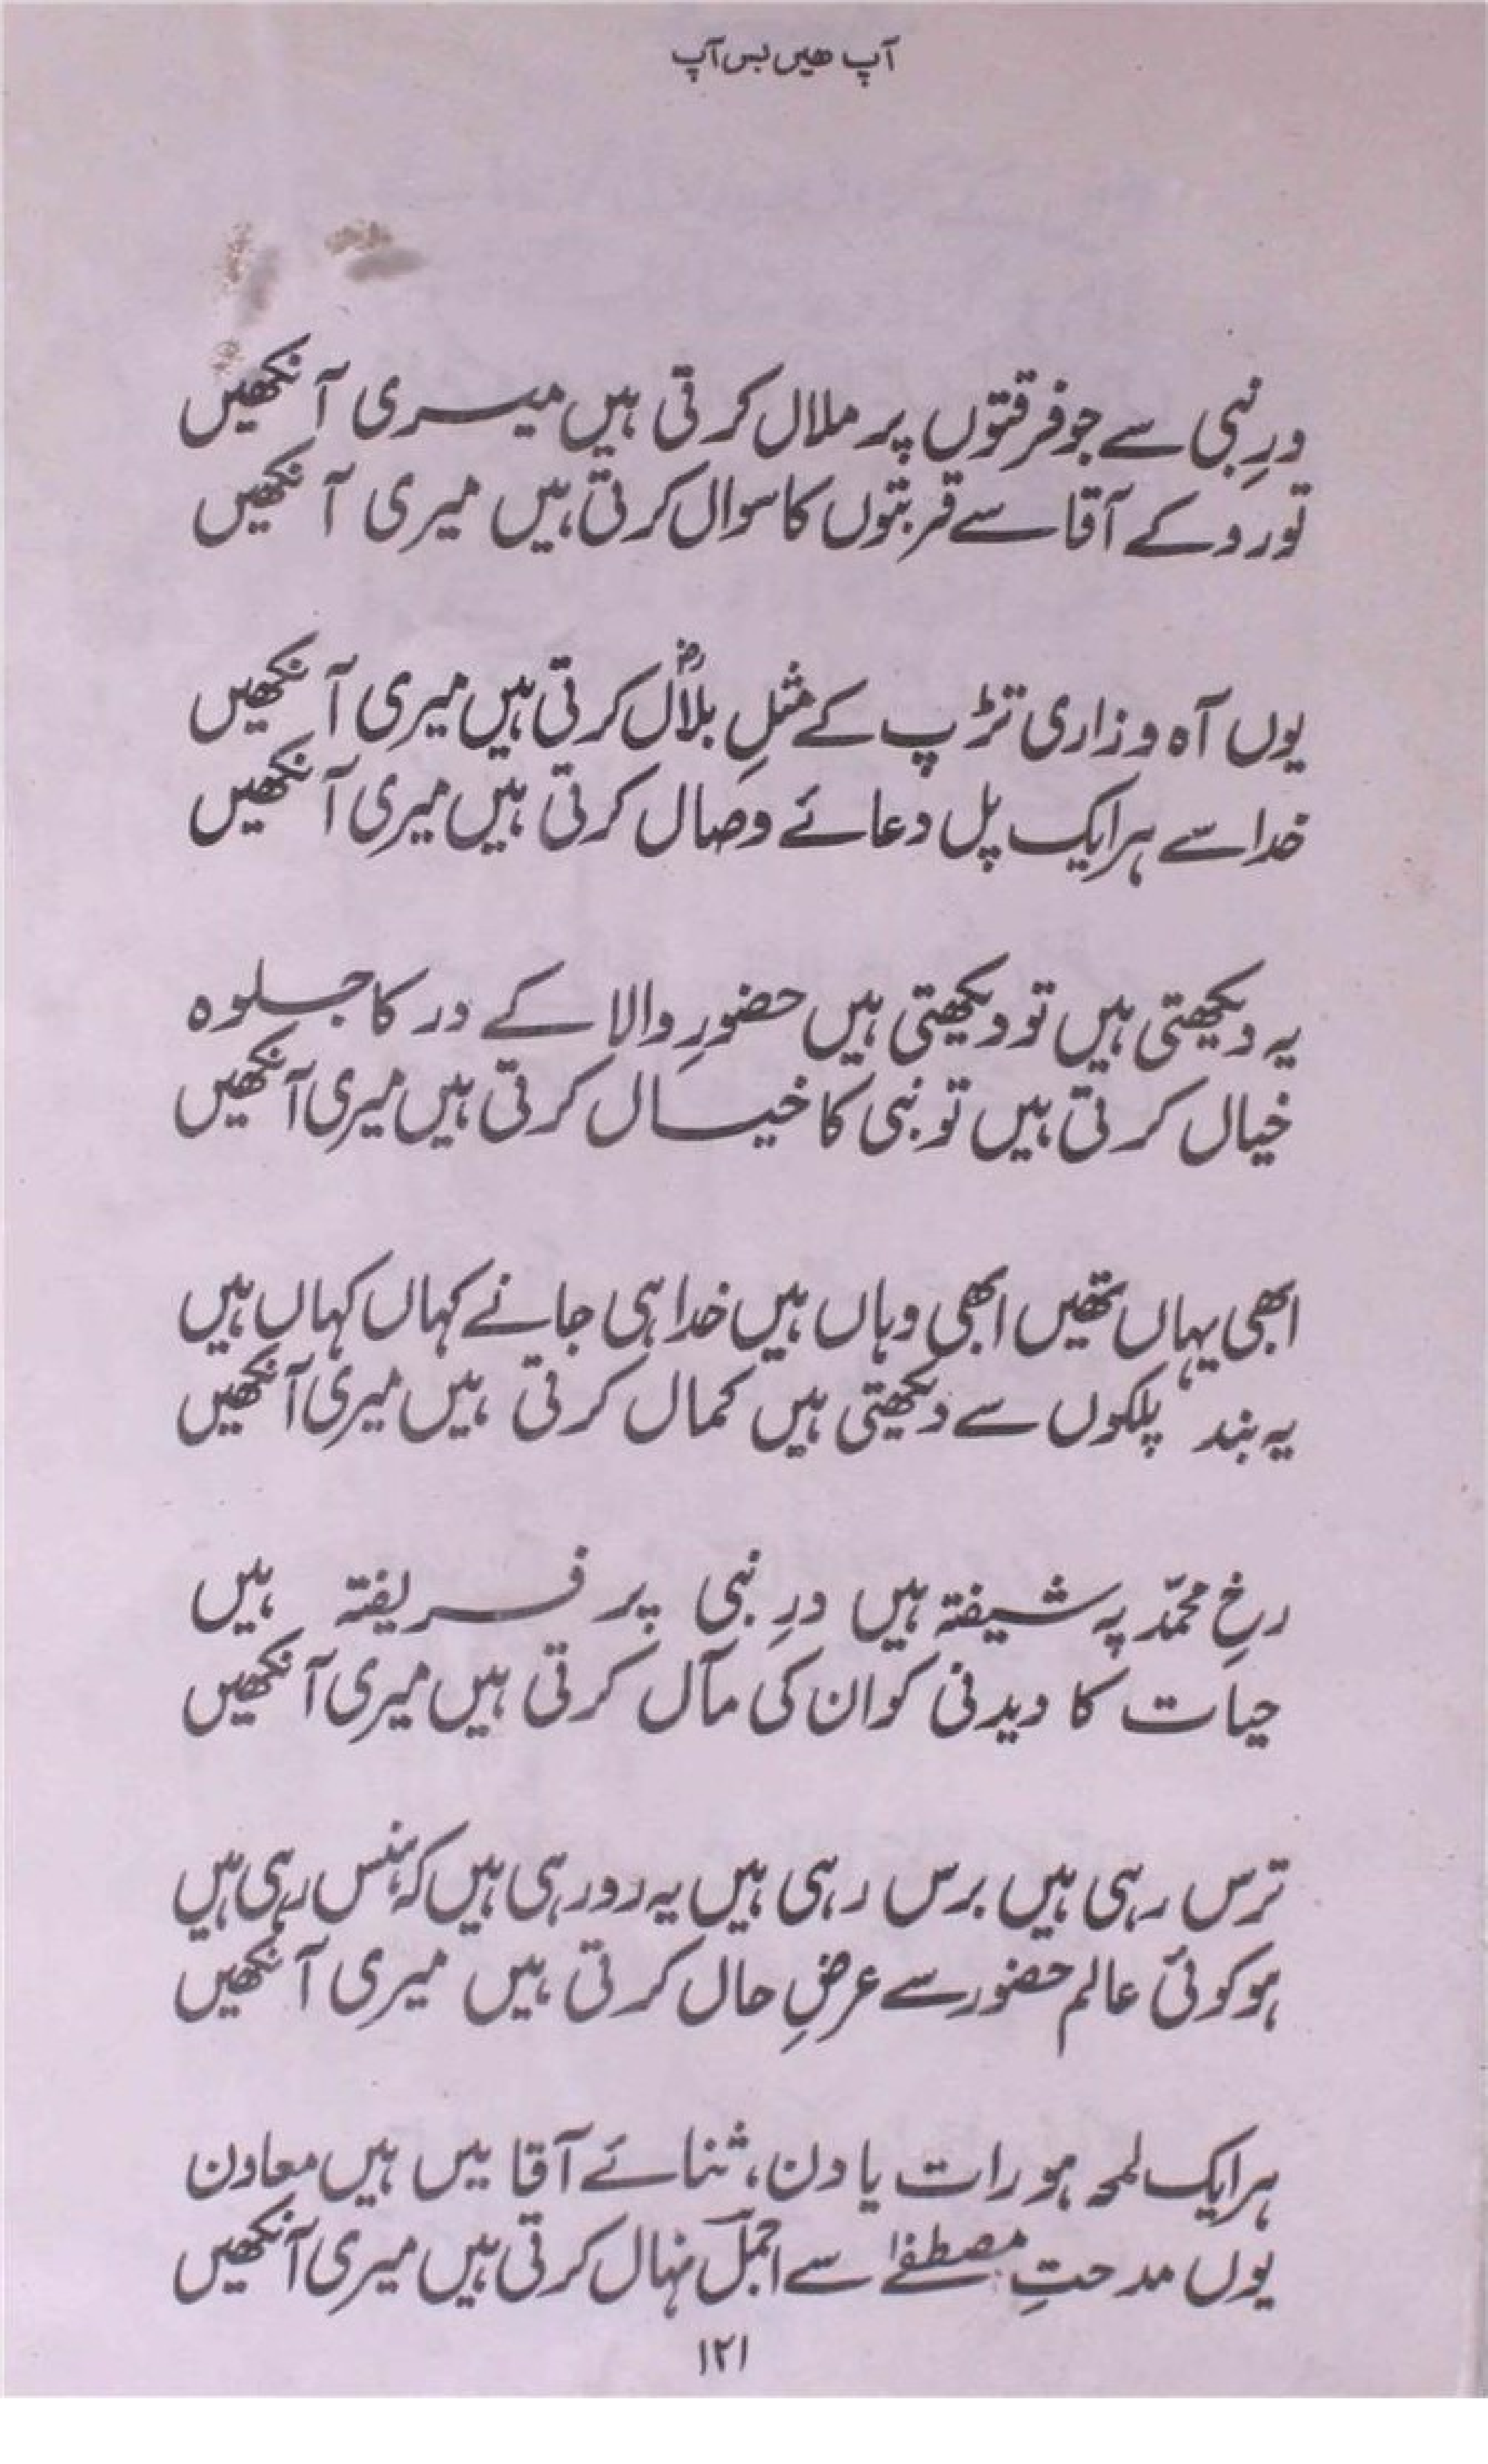 آپ ھیں بس آپ
درِ نبی سے جو فرقتوں پر ملال کرتی ہیں میری آنکھیں
تو رو کے آقا سے قربتوں کا سوال کرتی ہیں میری آنکھیں
یوں آہ و زاری تڑپ کے مثلِ بلالؓ کرتی ہیں میری آنکھیں
خدا سے ہر ایک پل دعائے وصال کرتی ہیں میری آنکھیں
یہ دیکھتی ہیں تو دیکھتی ہیں حضورِ والا کے در کا جلوہ
خیال کرتی ہیں تو نبی کا خیال کرتی ہیں میری آنکھیں
ابھی یہاں تھیں ابھی وہاں ہیں خدا ہی جانے کہاں کہاں ہیں
یہ بند پلکوں سے دیکھتی ہیں کمال کرتی ہیں میری آنکھیں
رخِ محمدؐ پہ شیفتہ ہیں درِ نبی پر فریفتہ ہیں
حیات کا دیدنی کو ان کی مآل کرتی ہیں میری آنکھیں
ترس رہی ہیں برس رہی ہیں یہ رو رہی ہیں کہ ہنس رہی ہیں
ہو کوئی عالم حضور سے عرضِ حال کرتی ہیں میری آنکھیں
ہر ایک لمحہ ہو رات یا دن، ثنائے آقا میں ہیں معاون
یوں مدحتِ مصطفےٰ سے اجملؔ نہال کرتی ہیں میری آنکھیں
۱۲۱